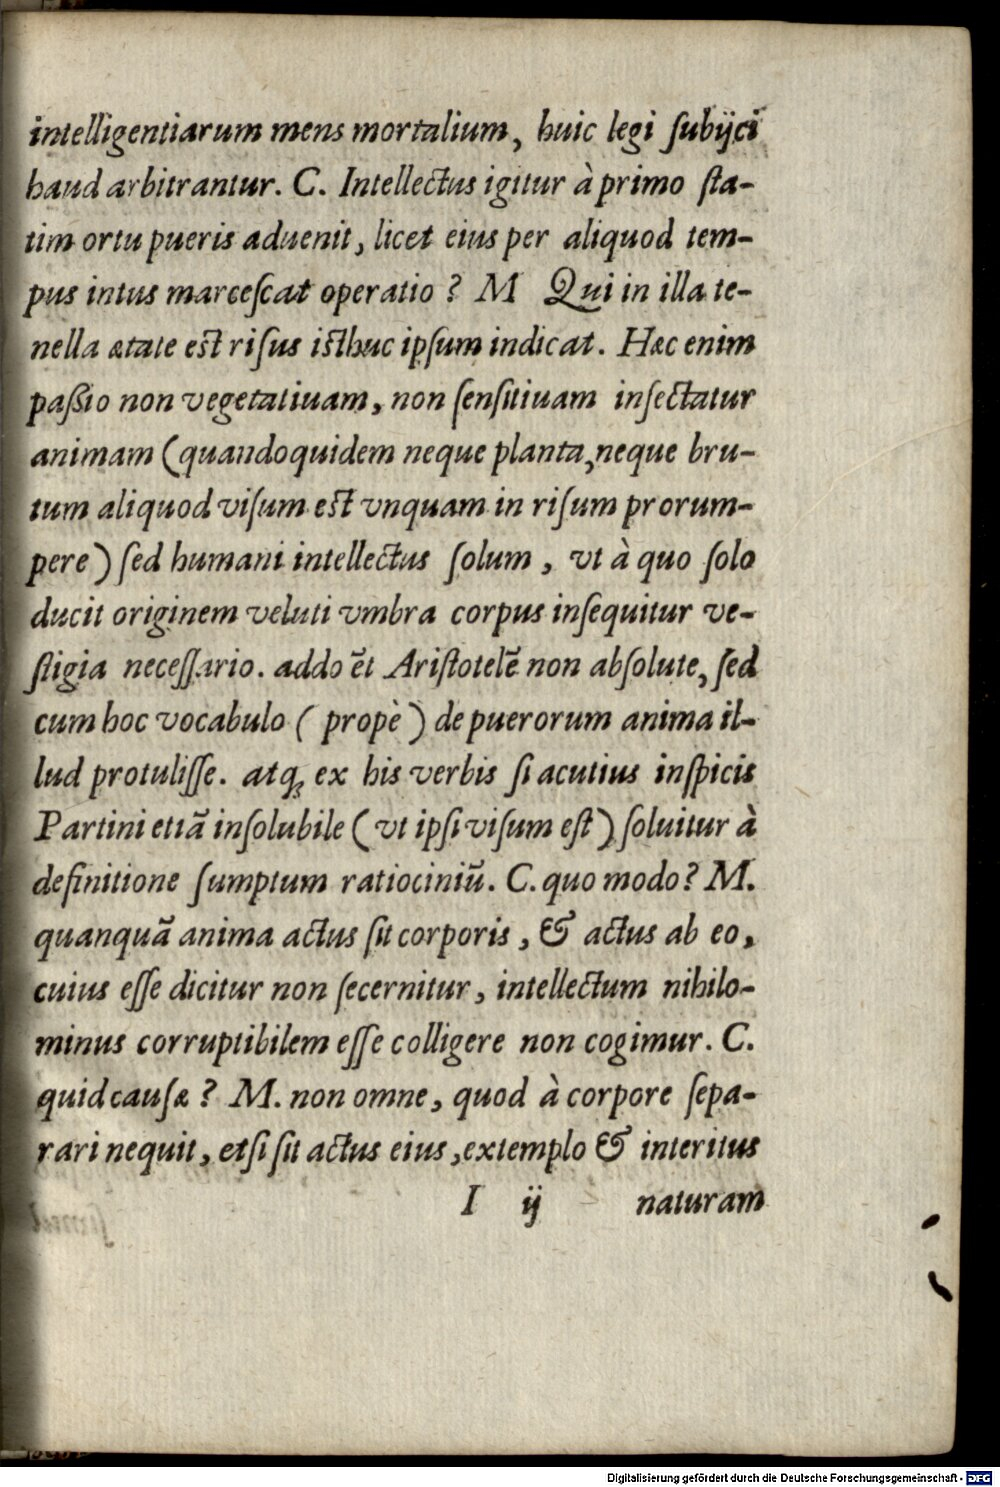 intelligentiarum mens mortalium, huic legi ſubijci
haud arbitrantur. C. Intellectus igitur à primo ſta-
tim ortu pueris aduenit, licet eius per aliquod tem-
pus intus marceſcat operatio? M Qui in illa te-
nella ætate eſt riſus iſthuc ipſum indicat. Hæc enim
paſſio non vegetatiuam, non ſenſitiuam inſectatur
animam (quandoquidem neque planta, neque bru-
tum aliquod viſum eſt vnquam in riſum prorum-
pere) ſed humani intellectus ſolum, vt à quo ſolo
ducit originem veluti vmbra corpus inſequitur ve-
ſtigia neceſſario. addo ēt Ariſtotelē non abſolute, ſed
cum hoc vocabulo (propè) de puerorum anima il-
lud protuliſſe. atq; ex his verbis ſi acutius inſpicis
Partini etiā inſolubile (vt ipſi viſum eſt) ſoluitur à
definitione ſumptum ratiociniū. C. quo modo? M.
quanquā anima actus ſit corporis, & actus ab eo,
cuius eſſe dicitur non ſecernitur, intellectum nihilo-
minus corruptibilem eſſe colligere non cogimur. C.
quid cauſæ? M. non omne, quod à corpore ſepa-
rari nequit, etſi ſit actus eius, extemplo & interitus
I ij naturam
Digitalisierung gefördert durch die Deutsche Forschungsgemeinschaft - DFG